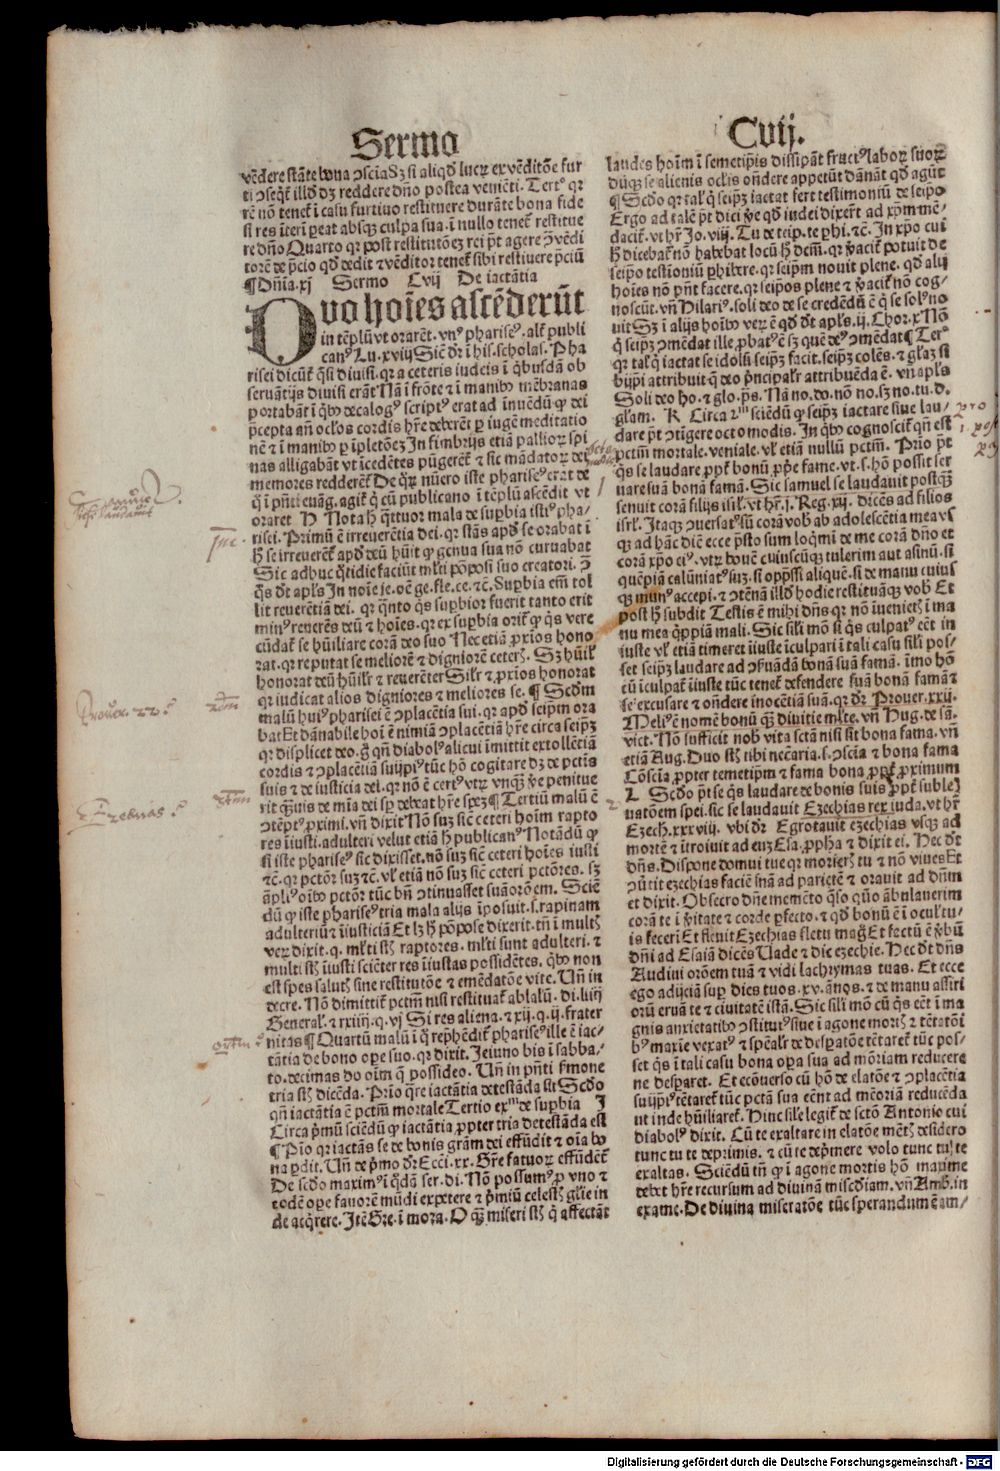 Sermo
Cvij.
vēdere stāte bona ɔsciaSꝫ si aliqd̄ lucꝝ ex vēditōe fur
ti ɔseq̄t illd̄ dꝫ reddere dn̄o postea veniēti. Terꝰ qꝛ
rē nō tenet̄ ī casu furtiuo restituere durāte bona fide
si res iteꝝ ꝑeat absqꝫ culpa sua. ī nullo tenet̄ restitue
re dn̄o Quarto qꝛ post restitutōeꝫ rei pt̄ agere ꝯ vēdi
torē de p̄cio qd̄ dedit ⁊ vēditor tenet̄ sibi restituere p̄ciū
¶ Dn̄ia.xj Sermo Cvij De iactātia
Duo hoīes ascēderūt
in tēplū vt orarēt. vnꝰ phariseꝰ. alt̄ publi
canꝰ Lu. xviij Sic̄ dr̄ ī his. scholas. Pha
risei dicūt̄ q̄si diuisi. qꝛ a ceteris iudeis ī qbusdā ob
seruātijs diuisi erāt Nā ī frōte ⁊ ī manibꝰ mēbranas
portabāt ī qbꝰ decalogꝰ scriptꝰ erat ad īnuēdū ꝙ dei
p̄cepta an̄ ocl̄os cordis hr̄e deberēt ꝑ iugē meditatio
nē ⁊ ī manibꝰ ꝑ īpletōeꝫ In fimbrijs etiā pallioꝝ spi
nas alligabāt vt īcedētes pūgerēt̄ ⁊ sic mādatoꝝ dei
memores redderēt̄ De qꝝ nūero iste phariseꝰ erat de
q̄ ī pn̄ti euāg. agit̄ q̄ cū publicano ī tēplū ascēdit vt
oraret H Nota h̄ q̄ttuor mala de suꝑbia istiꝰ pha/
risei. Primū ē irreuerētia dei. qꝛ stās apd̄ se orabat ī
h̄ se irreuerēt̄ apd̄ deū hūit ꝙ genua sua nō curuabat
Sic adhuc q̄tidie faciūt ml̄ti ꝓposi suo creatori. ꝯ
qs̄ dt̄ apl̄s In noīe je. oē ge. fle. ce. ⁊c. Suꝑbia em̄ tol
lit reuerētiā dei. qꝛ qnto qs̄ suꝑbior fuerit tanto erit
minꝰ reuerēs deū ⁊ hoīes. qꝛ ex suꝑbia orit̄ ꝙ qs̄ vere
cūdat̄ se hūiliare corā deo suo Nec etiā ꝓxios hono
rat. qꝛ reputat se meliorē ⁊ digniorē ceterꝭ. Sꝫ hūil̄r
honorat deū hūil̄r ⁊ reuerēter Sil̄r ⁊ ꝓxios honorat
qꝛ iudicat alios digniores ⁊ meliores se. ¶ Scd̄m
malū huiꝰ pharisei ē ɔplacētia sui. qꝛ apd̄ seipm̄ ora
bat Et dānabile hoī ē nimiā ɔplacētiā hr̄e circa seipꝫ
qꝛ displicet deo. g̊ qn̄ diabolꝰ alicui īmittit extollētiā
cordis ⁊ ɔplacētiā suijpiꝰ tūc hō cogitare dꝫ de pctis
suis ⁊ de iusticia dei. qꝛ nō ē certꝰ vtꝝ vnqꝫ v̄e penitue
rit qmuis de mīa dei sꝑ debeat hr̄e spem ¶ Tertiū malū ē
ɔtēptꝰ ꝓximi. vn̄ dixit Nō suꝫ sic̄ ceteri hoīm rapto
res īiusti. adulteri velut etiā h̄ publicanꝰ Notādū ꝙ
si iste phariseꝰ sic dixisset. nō suꝫ sic̄ ceteri hoīes iusti
⁊c. qꝛ pctōr suꝫ ⁊c. vl̄ etiā nō suꝫ sic̄ ceteri pctōres. sꝫ
āpliꝰ oībꝰ pctōr tūc bn̄ ɔtinuasset suā orōem. Sciē
dū ꝙ iste phariseꝰ tria mala alijs īposuit. s. rapinam
adulteriū ⁊ īiusticiā Et lꝫ h̄ ꝓpose dixerit. tn̄ ī multꝭ
veꝝ dixit. q. ml̄ti st̄ raptores. ml̄ti sunt adulteri. ⁊
multi st̄ īiusti sciēter res īiustas possidētes. qbꝰ non
est spes salutꝭ sine restitutōe ⁊ emēdatōe vite. Vn̄ in
decre. Nō dimittit̄ pctm̄ nisi restituat̄ ablatū. di. liiij
General̄. ⁊ rxiiij. q. vj Si res aliena. ⁊ xij. q. ij. frater
nitas ¶ Quartū malū ī q̄ rep̄hēdit̄ phariseꝰ ille ē iac/
tātia de bono oꝑe suo. qꝛ dixit. Jeiuno bis ī sabba/
to. decimas do oīm q̄ possideo. Vn̄ in pn̄ti ẜmone
tria st̄ dicēda. Prīo qre iactātia detestāda sit Scd̄o
qn̄ iactātia ē pctm̄ mortale Tertio exm̄ de suꝑbia J
Circa pmū sciēdū ꝙ iactātia ꝓpter tria detestāda est
¶ Pīo qꝛ iactās se de bonis grām dei effūdit ⁊ oīa bo
na ꝑdit. Vn̄ de pmo dr̄ Ecci. xx. Gr̄e fatuoꝝ effūdēt̄
De scd̄o maximꝰ ī q̄dā ser. di. Nō possumꝰ ꝑ vno ⁊
eodē oꝑe fauorē mūdi exꝑetere ⁊ pmiū celestꝭ gl̄ie in
de acqrere. Jtē Gre. ī mora. O qꝫ miseri st̄ q̄ affectāt
laudes hoīm ī semetip̄is dissipāt fructꝰ laboꝝ suoꝝ
dūqꝫ se alienis ocl̄is on̄dere appetūt dānāt qd̄ agūt
¶ Scd̄o qꝛ tal̄ q̄ seipꝫ iactat fert testimoniū de seip̄o
Ergo ad talē pt̄ dici v̄e qd̄ iudei dixer̄t ad xp̄m mē/
dacit̄. vt hr̄ Jo. viij. Tu de teip̄. te ꝑhi. ⁊c. In xp̄o cui
h̄ dicebat̄ nō habebat locū h̄ dcm̄. qꝛ v̄acit̄ potuit de
seip̄o testioniū ꝑhibere. qꝛ seipm̄ nouit plene. qd̄ alij
hoīes nō pn̄t facere. qꝛ seipos plene ⁊ v̄acit̄ nō cog/
noscūt. vn̄ Hilariꝰ. soli deo de se credēdū ē q̄ se solꝰ no
uit Sꝫ ī alijs hoībꝰ veꝝ ē qd̄ dt̄ apl̄s. ij. Chor. x Nō
q̄ seipꝫ ɔmēdat ille ꝓbatꝰ ē sꝫ quē deꝰ ɔmēdat ¶ Terꝰ
qꝛ tal̄ q̄ iactat se idolū seipꝫ facit. seipꝫ colēs. ⁊ gl̄aꝫ si
bijpi attribuit q̄ deo pncipal̄r attribuēda ē. vn̄ apl̄s
Soli deo ho. ⁊ glo. p̄s. Nā no. do. nō no. sꝫ no. tu. d.
gl̄am. K Circa 2m sciēdū ꝙ seipꝫ iactare siue lau/
dare pt̄ ɔtigere octo modis. In qbꝰ cognoscit̄ qn̄ est
pctm̄ mortale. veniale. vl̄ etiā nullū pctm̄. Prīo pt̄
qs̄ se laudare ꝓpt̄ bonū ꝓp̄e fame. vt. s. hō possit ser
uare suā bonā famā. Sic samuel se laudauit postqꝫ
senuit corā filijs isrl̄. vt hr̄. j. Reg. xij. dicēs ad filios
isrl̄. Itaqꝫ ɔuersatꝰ sū corā vob̄ ab adolescētia mea vs
qꝫ ad hāc diē ecce p̄sto sum loqmi de me corā dn̄o et
corā xp̄o eiꝰ. vtꝝ bouē cuiuscūqꝫ tulerim aut asinū. si
quēpiā calūniatꝰ suꝫ. si opp̄ssi aliquē. si de manu cuius
qꝫ munꝰ accepi. ⁊ ɔtēnā illd̄ hodie restituāqꝫ vob̄ Et
post h̄ subdit Testis ē mihi dn̄s qꝛ nō īuenietꝭ ī ma
nu mea q̄ppiā mali. Sic sil̄i mō si qs̄ culpatꝰ eēt in
iuste vl̄ etiā timeret īiuste īculpari ī tali casu sil̄i pos/
set seipꝫ laudare ad ɔẜuādā bonā suā famā. īmo hō
cū īculpat̄ īiuste tūc tenet̄ defendere suā bonā famā ⁊
se excusare ⁊ on̄dere inocētiā suā. qꝛ dr̄ Prouer. xxij.
Meliꝰ ē nomē bonū qꝫ diuitie ml̄te. vn̄ Hug. de sā.
vict. Nō sufficit nob̄ vita sctā nisi sit bona fama. vn̄
etiā Aug. Duo st̄ tibi necc̄aria. s. ɔscia ⁊ bona fama
Cōscia ꝓpter temetip̄m ⁊ fama bona ꝓpt̄ ꝓximum
L Scd̄o pt̄ se qs̄ laudare de bonis suis ꝓpt̄ suble
uatōem spei. sic se laudauit Ezechias rex iuda. vt hr̄
Ezech. xxxviij. vbi dr̄ Egrotauit ezechias vsqꝫ ad
mortē ⁊ ītroiuit ad euꝫ Esa. ꝓpha ⁊ dixit ei. Hec dt̄
dn̄s. Dispone domui tue qꝛ morierꝭ tu ⁊ nō viues Et
ɔūtit ezechias faciē suā ad parietē ⁊ orauit ad dn̄m
et dixit. Obsecro dn̄e memēto qso quō ābulauerim
corā te ī v̄itate ⁊ corde ꝑfecto. ⁊ qd̄ bonū ē ī ocul̄ tu/
is feceri Et fleuit Ezechias fletu mag̊ Et fcctū ē v̄bū
dn̄i ad Esaiā dicēs Vade ⁊ dic ezechie. Hec dt̄ dn̄s
Audiui orōem tuā ⁊ vidi lachrymas tuas. Et ecce
ego adijciā suꝑ dies tuos. xv. ānos. ⁊ de manu assiri
orū eruā te ⁊ ciuitatē istā. Sic sil̄i mō cū qs̄ eēt ī ma
gnis anxietatibꝰ ɔstitutꝰ siue ī agone mortꝭ ⁊ tētatōī
bꝰ maxīe vexatꝰ ⁊ speālr̄ de desꝑatōe tētaret̄ tūc pos/
set qs̄ ī tali casu bona oꝑa sua ad mōriam reducere
ne desꝑaret. Et ecōuerso cū hō de elatōe ⁊ ɔplacētia
suijpiꝰ tētaret̄ tūc pctā sua eēnt ad mēoriā reducēda
vt inde hūiliaret̄. Hinc sil̄e legit̄ de sctō Antonio cui
diabolꝰ dixit. Cū te exaltare in elatōe mētꝭ desidero
tunc tu te deprimis. ⁊ cū te dep̄mere volo tunc tu te
exaltas. Sciēdū tn̄ ꝙ ī agone mortis hō maxime
debet hr̄e recursum ad diuinā misc̄diam. vn̄ Amb. in
exame. De diuina miseratōe tūc sperandum ē am/
Prouer. 22.
Ezechias
Digitalisierung gefördert durch die Deutsche Forschungsgemeinschaft - DFG